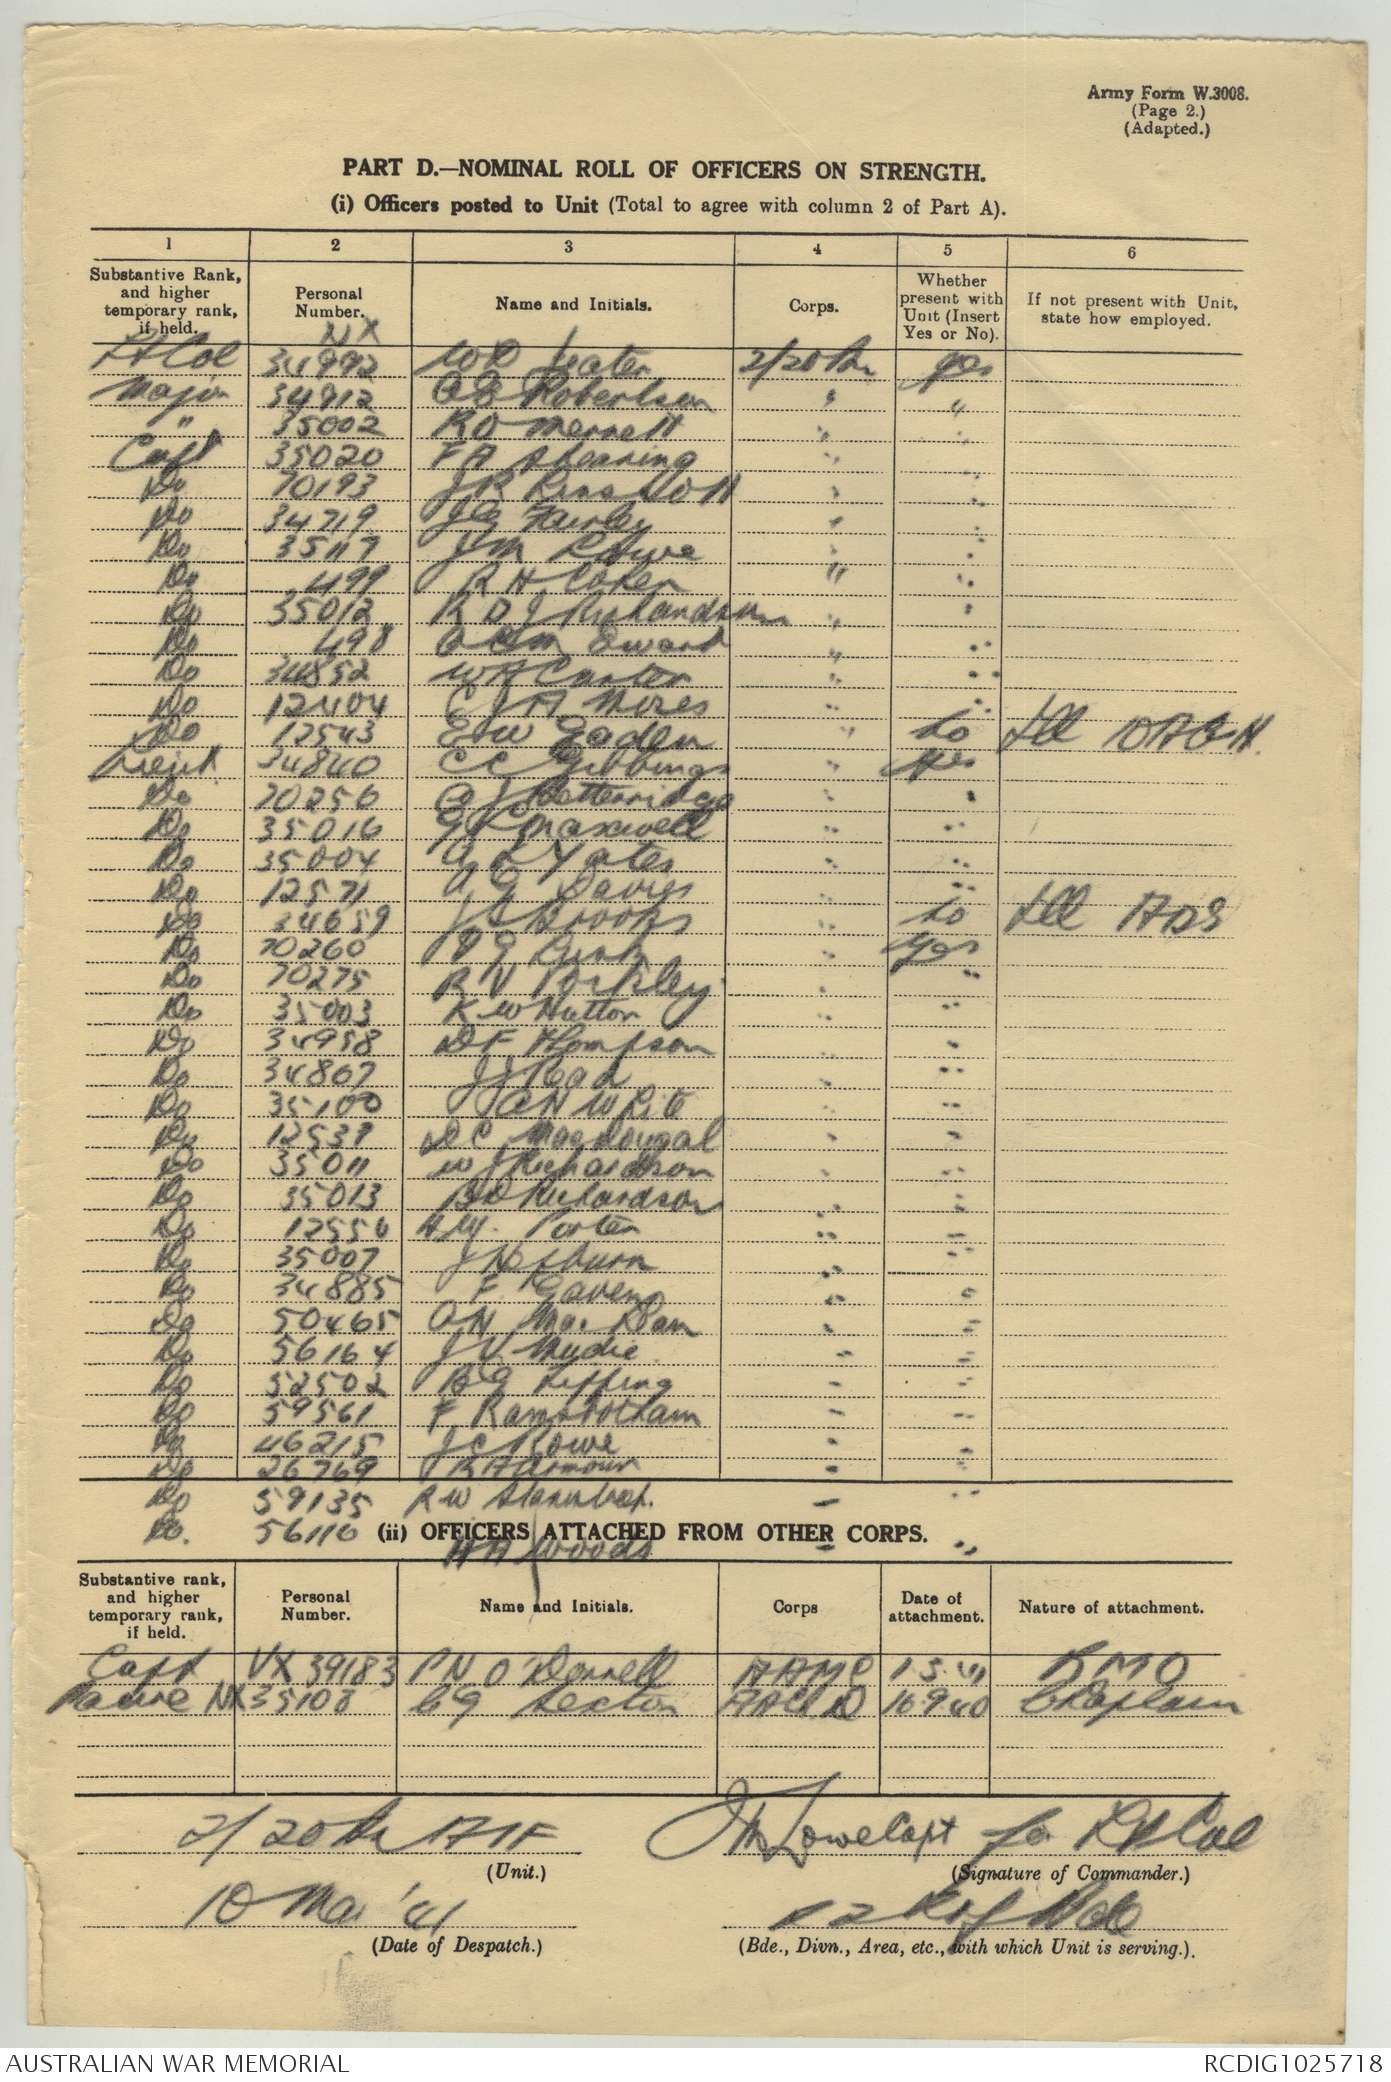 Army Form W.3008.
(Page 2.)
(Adapted.)
PART D.—NOMINAL ROLL OF OFFICERS ON STRENGTH.
(i) Officers posted to Unit (Total to agree with column 2 of Part A).
1 2 3 4 5 6
Substantive Rank, and higher temporary rank, if held. Personal Number. Name and Initials. Corps. Whether present with Unit (Insert Yes or No). If not present with Unit, state how employed.
NX
Lt Col 34992 W D Jeater 2/20 Bn yes
Major 34912 A E Robertson " "
" 35002 R O Merrett " "
Capt 35020 F A Shearing " "
Do 70193 " "
Do 34719 J G Fairley " "
Do 35117 J M Lowe " "
Do 499 R H Cohen " "
Do 35012 R D J Richardson " "
Do 498 A C M Ewart " "
Do 34852 W A Carter " "
Do 12404 C J A Moses " "
Do 12543 E W Gaden " No Det
Lieut 34840 C C Gibbings " yes
Do 70256 A J Betteridge " "
Do 35016 Maxwell " "
Do 35004 A L Yates " "
Do 12571 A G Davies " "
Do 34659 J G Brooks " No Det
Do 70260 " yes
Do 70275 R V " "
Do 35003 K W Hutton " "
Do 34958 D F Thompson " "
Do 34867 J J Read " "
Do 35100 A N White " "
Do 12538 D C MacDougal " "
Do 35011 W J Richardson " "
Do 35013 B D Richardson " "
Do 12556 H W Porter " "
Do 35007 " "
Do 34885 F Gaven " "
Do 50465 " "
Do 56164 J V Mudie " "
Do 52502 B G Tipping " "
Do 59561 F Ramsbotham " "
Do 46215 J C Rowe " "
Do 26769 R A Armour " "
Do 59135 R W " "
Do. 56110 H A Woods " "
(ii) OFFICERS ATTACHED FROM OTHER CORPS.
Substantive rank, and higher temporary rank, if held. Personal Number. Name and Initials. Corps Date of attachment. Nature of attachment.
Capt VX 39183 P N O'Donnell AAMC 1.3.41 RMO
NX 35108 C G Sexton 16.9.40 Chaplain
2/20 Bn AIF J M Lowe Capt for Lt Col
(Unit.) (Signature of Commander.)
10 Mar '41 22 Bde
(Date of Despatch.) (Bde., Divn., Area, etc., with which Unit is serving.).
AUSTRALIAN WAR MEMORIAL RCDIG1025718